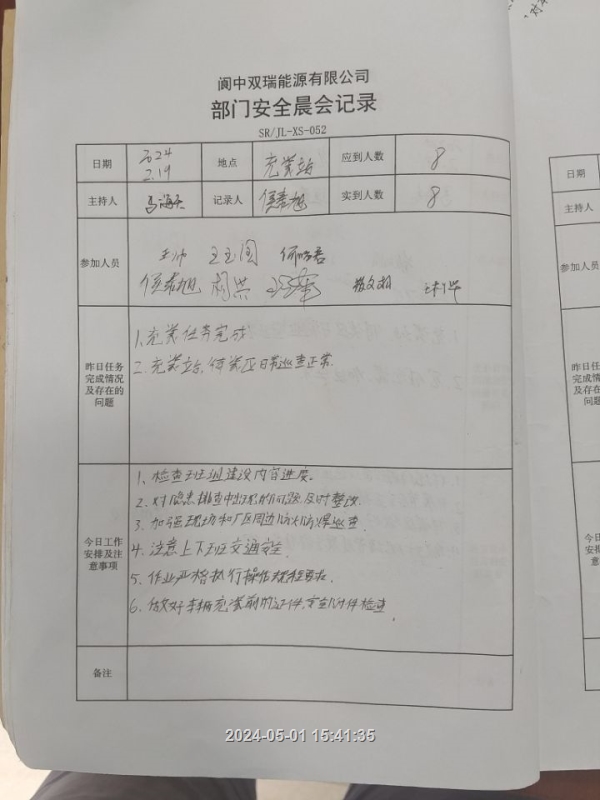 阆中双瑞能源有限公司
部门安全晨会记录
SR/JL-XS-052
日期 2024 2.19 地点 充装站 应到人数 8
主持人 记录人 侯春旭 实到人数 8
参加人员
侯春旭
昨日任务完成情况及存在的问题
1、充装任务完成
2、充装站、储装区日常巡查正常.
今日工作安排及注意事项
1、检查班组建设内容进度.
2、对隐患排查中出现的问题及时整改.
3、加强现场和厂区周边防火防爆巡查.
4、注意上下班交通安全.
5、作业严格执行操作规程要求.
6、做好车辆充装前的证件,安全附件检查.
备注
2024-05-01 15:41:35
日期
主持人
参加人员